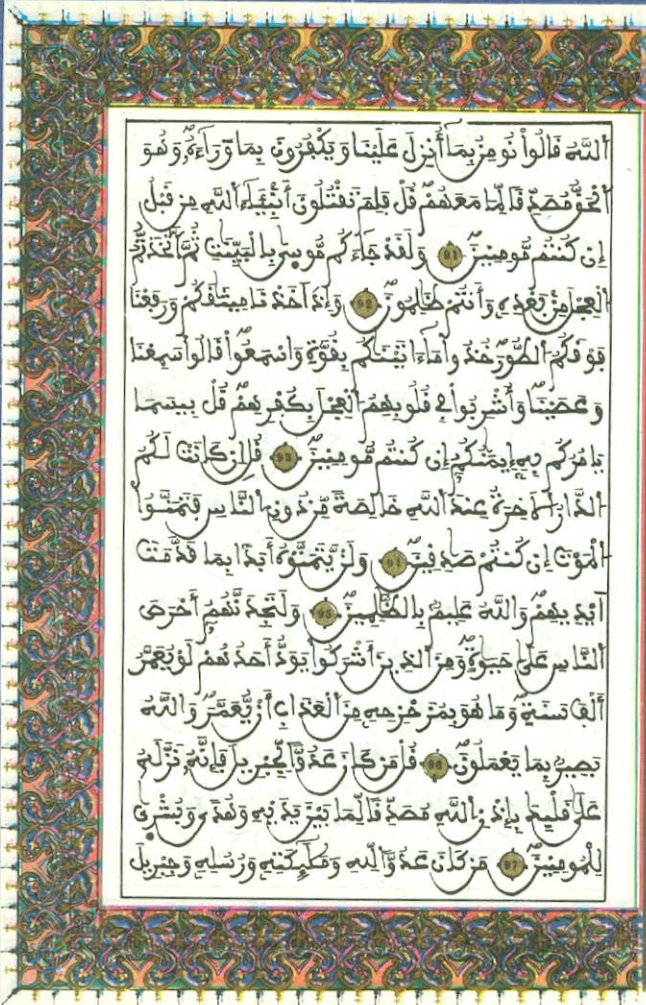 اَللَّهُ قَالُواْ نُومِنُ بِمَا أُنزِلَ عَلَيْنَا وَيَكْفُرُونَ بِمَا وَرَآءَهُۥ وَهُوَ
اَلْحَقُّ مُصَدِّقاً لِّمَا مَعَهُمْ قُلْ فَلِمَ تَقْتُلُونَ أَنۢبِئَآءَ اَللَّهِ مِن قَبْلُ
إِن كُنتُم مُّومِنِينَ 91 وَلَقَدْ جَآءَكُم مُّوسِىٰ بِالْبَيِّنَٰتِ ثُمَّ اَتَّخَذتُّمُ
اُلْعِجْلَ مِنۢ بَعْدِهِۦ وَأَنتُمْ ظَٰلِمُونَ 92 وَإِذَ اَخَذْنَا مِيثَٰقَكُمْ وَرَفَعْنَا
فَوْقَكُمُ اُلطُّورَ خُذُواْ مَآ ءَاتَيْنَٰكُم بِقُوَّةٍ وَاسْمَعُواْ قَالُواْ سَمِعْنَا
وَعَصَيْنَا وَأُشْرِبُواْ فِى قُلُوبِهِمُ اُلْعِجْلَ بِكُفْرِهِمْ قُلْ بِيسَمَا
يَامُرُكُم بِهِۦٓ إِيمَٰنُكُمُۥٓ إِن كُنتُم مُّومِنِينَ 93 قُلِ اِن كَانَتْ لَكُمُ
اُلدَّارُ اُلَاخِرَةُ عِندَ اَللَّهِ خَالِصَةً مِّن دُونِ اِلنَّاسِ فَتَمَنَّوُاْ
اُلْمَوْتَ إِن كُنتُمْ صَٰدِقِينَ 94 وَلَنْ يَّتَمَنَّوْهُ أَبَداً بِمَا قَدَّمَتَ
اَيْدِيهِمْ وَاللَّهُ عَلِيمٌۢ بِالظَّٰلِمِينَ 95 وَلَتَجِدَنَّهُمُۥٓ أَحْرَصَ
اَلنَّاسِ عَلَىٰ حَيَوٰةٍ وَمِنَ اَلذِينَ أَشْرَكُواْ يَوَدُّ أَحَدُهُمْ لَوْ يُعَمَّرُ
أَلْفَ سَنَةٍ وَمَا هُوَ بِمُزَحْزِحِهِۦ مِنَ اَلْعَذَابِ أَنْ يُّعَمَّرَ وَاللَّهُ
بَصِيرٌۢ بِمَا يَعْمَلُونَ 96 قُلْ مَن كَانَ عَدُوّاً لِّجِبْرِيلَ فَإِنَّهُۥ نَزَّلَهُۥ
عَلَىٰ قَلْبِكَ بِإِذْنِ اِللَّهِ مُصَدِّقاً لِّمَا بَيْنَ يَدَيْهِ وَهُدىً وَبُشْرىٰ
لِلْمُومِنِينَ 97 مَن كَانَ عَدُوّاً لِّلهِ وَمَلَٰٓئِكَتِهِۦ وَرُسُلِهِۦ وَجِبْرِيلَ